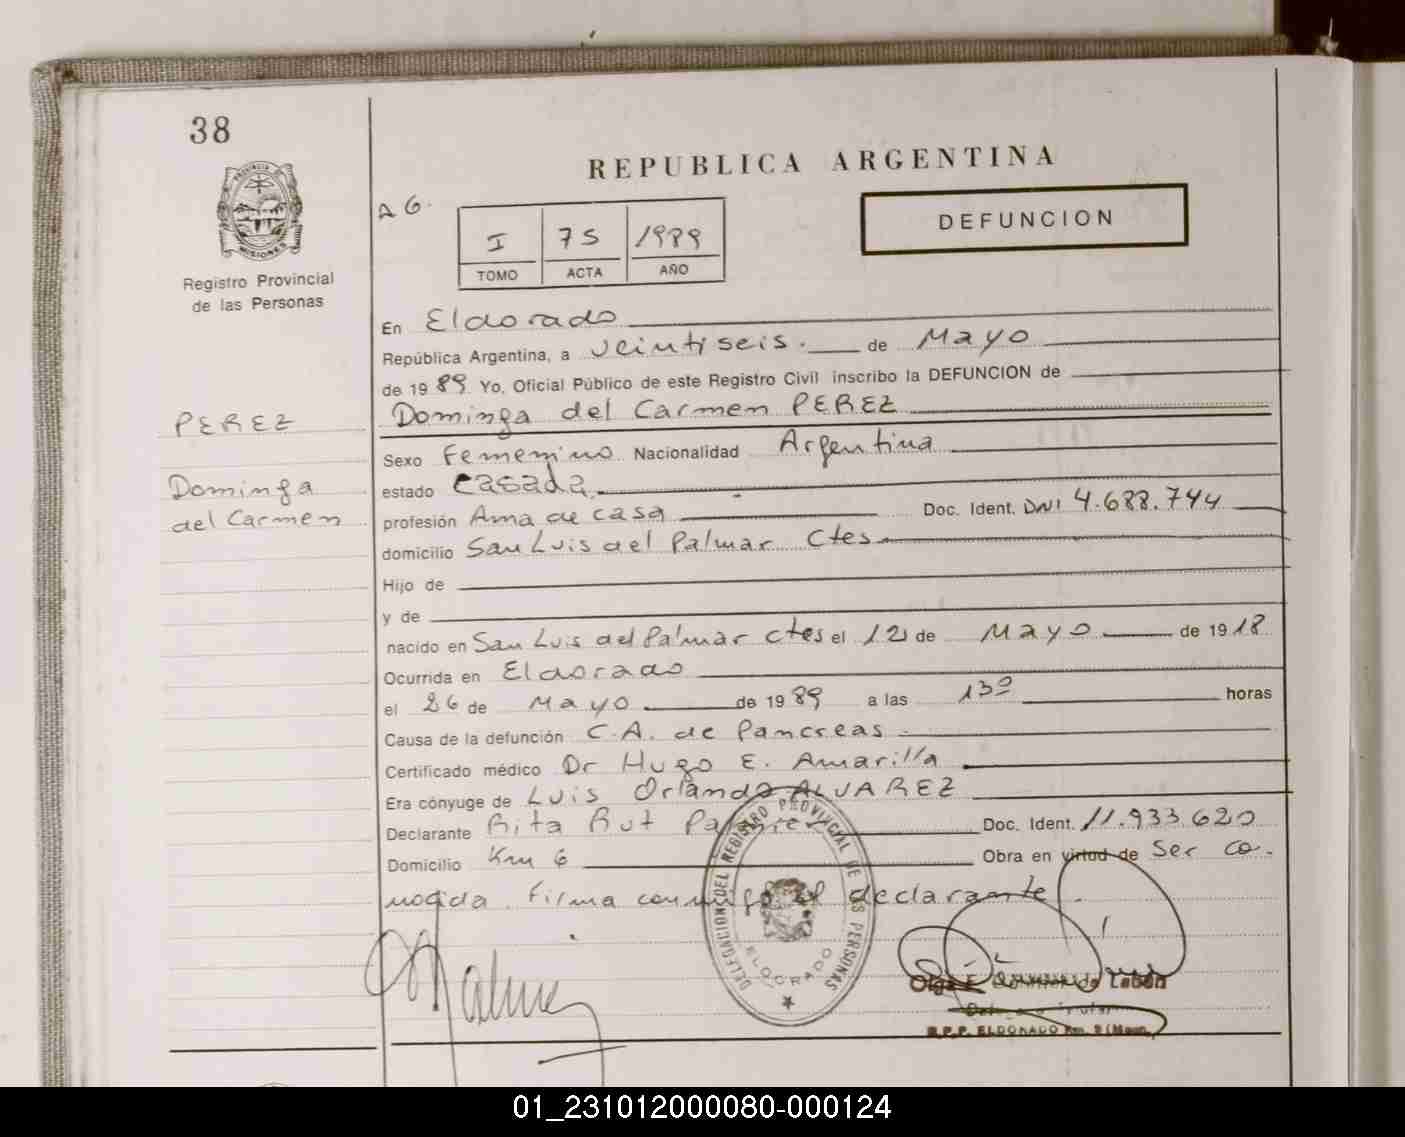 38
PROVINCIA DE
MISIONES
Registro Provincial
de las Personas
REPUBLICA ARGENTINA
A G.
I 75 1989
TOMO ACTA AÑO
DEFUNCION
En Eldorado
República Argentina, a veintiseis. de Mayo
de 1989 Yo, Oficial Público de este Registro Civil inscribo la DEFUNCION de
Dominga del Carmen PEREZ
PEREZ
Dominga
del Carmen
Sexo Femenino Nacionalidad Argentina
estado Casada
profesión Ama de casa Doc. Ident. DNI 4.688.744
domicilio San Luis del Palmar Ctes
Hijo de
y de
nacido en San Luis del Palmar Ctes el 12 de Mayo de 1918
Ocurrida en Eldorado
el 26 de Mayo de 1989 a las 13º horas
Causa de la defunción C.A. de Pancreas.
Certificado médico Dr Hugo E. Amarilla
Era cónyuge de Luis Orlando ALVAREZ
Declarante Rita Rut Doc. Ident. 11.933.620
Domicilio Km 6 Obra en virtud de Ser co.
nocida. Firma conmigo el declarante.
DELEGACION DEL REGISTRO PROVINCIAL DE LAS PERSONAS
ELDORADO
Olga E. de Labón
R.P.P. ELDORADO Km. 9 (Mnes.)
01_231012000080-000124